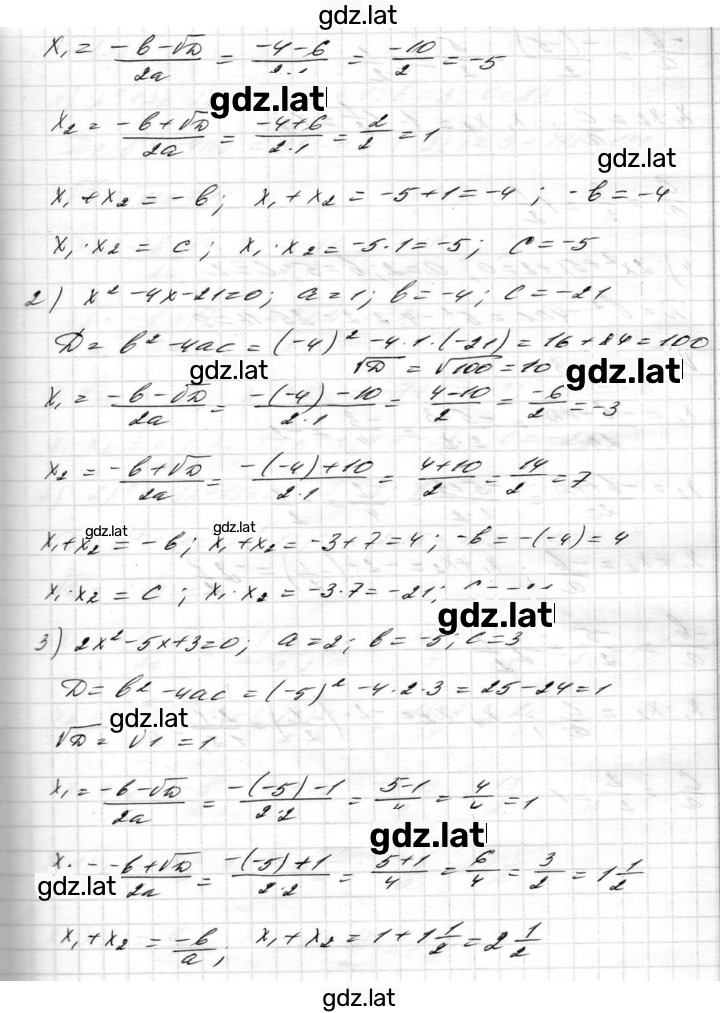 gdz.lat
x₁ = (-b-√D)/2a = (-4-6)/2·1 = -10/2 = -5
gdz.lat
x₂ = (-b+√D)/2a = (-4+6)/2·1 = 2/2 = 1
gdz.lat
x₁+x₂ = -b; x₁+x₂ = -5+1 = -4; -b = -4
x₁·x₂ = c; x₁·x₂ = -5·1 = -5; c = -5
2) x²-4x-21=0; a=1; b=-4; c=-21
D = b²-4ac = (-4)²-4·1·(-21) = 16+84 = 100
√D = √100 = 10
gdz.lat
gdz.lat
x₁ = (-b-√D)/2a = (-(-4)-10)/2·1 = (4-10)/2 = -6/2 = -3
x₂ = (-b+√D)/2a = (-(-4)+10)/2·1 = (4+10)/2 = 14/2 = 7
gdz.lat
gdz.lat
x₁+x₂ = -b; x₁+x₂ = -3+7 = 4; -b = -(-4) = 4
x₁·x₂ = c; x₁·x₂ = -3·7 = -21;
gdz.lat
3) 2x²-5x+3=0; a=2; b=-5; c=3
D = b²-4ac = (-5)²-4·2·3 = 25-24 = 1
gdz.lat
√D = √1 = 1
x₁ = (-b-√D)/2a = (-(-5)-1)/2·2 = (5-1)/4 = 4/4 = 1
gdz.lat
(-b+√D)/2a = (-(-5)+1)/2·2 = (5+1)/4 = 6/4 = 3/2 = 1 1/2
gdz.lat
x₁+x₂ = -b/a; x₁+x₂ = 1+1 1/2 = 2 1/2
gdz.lat